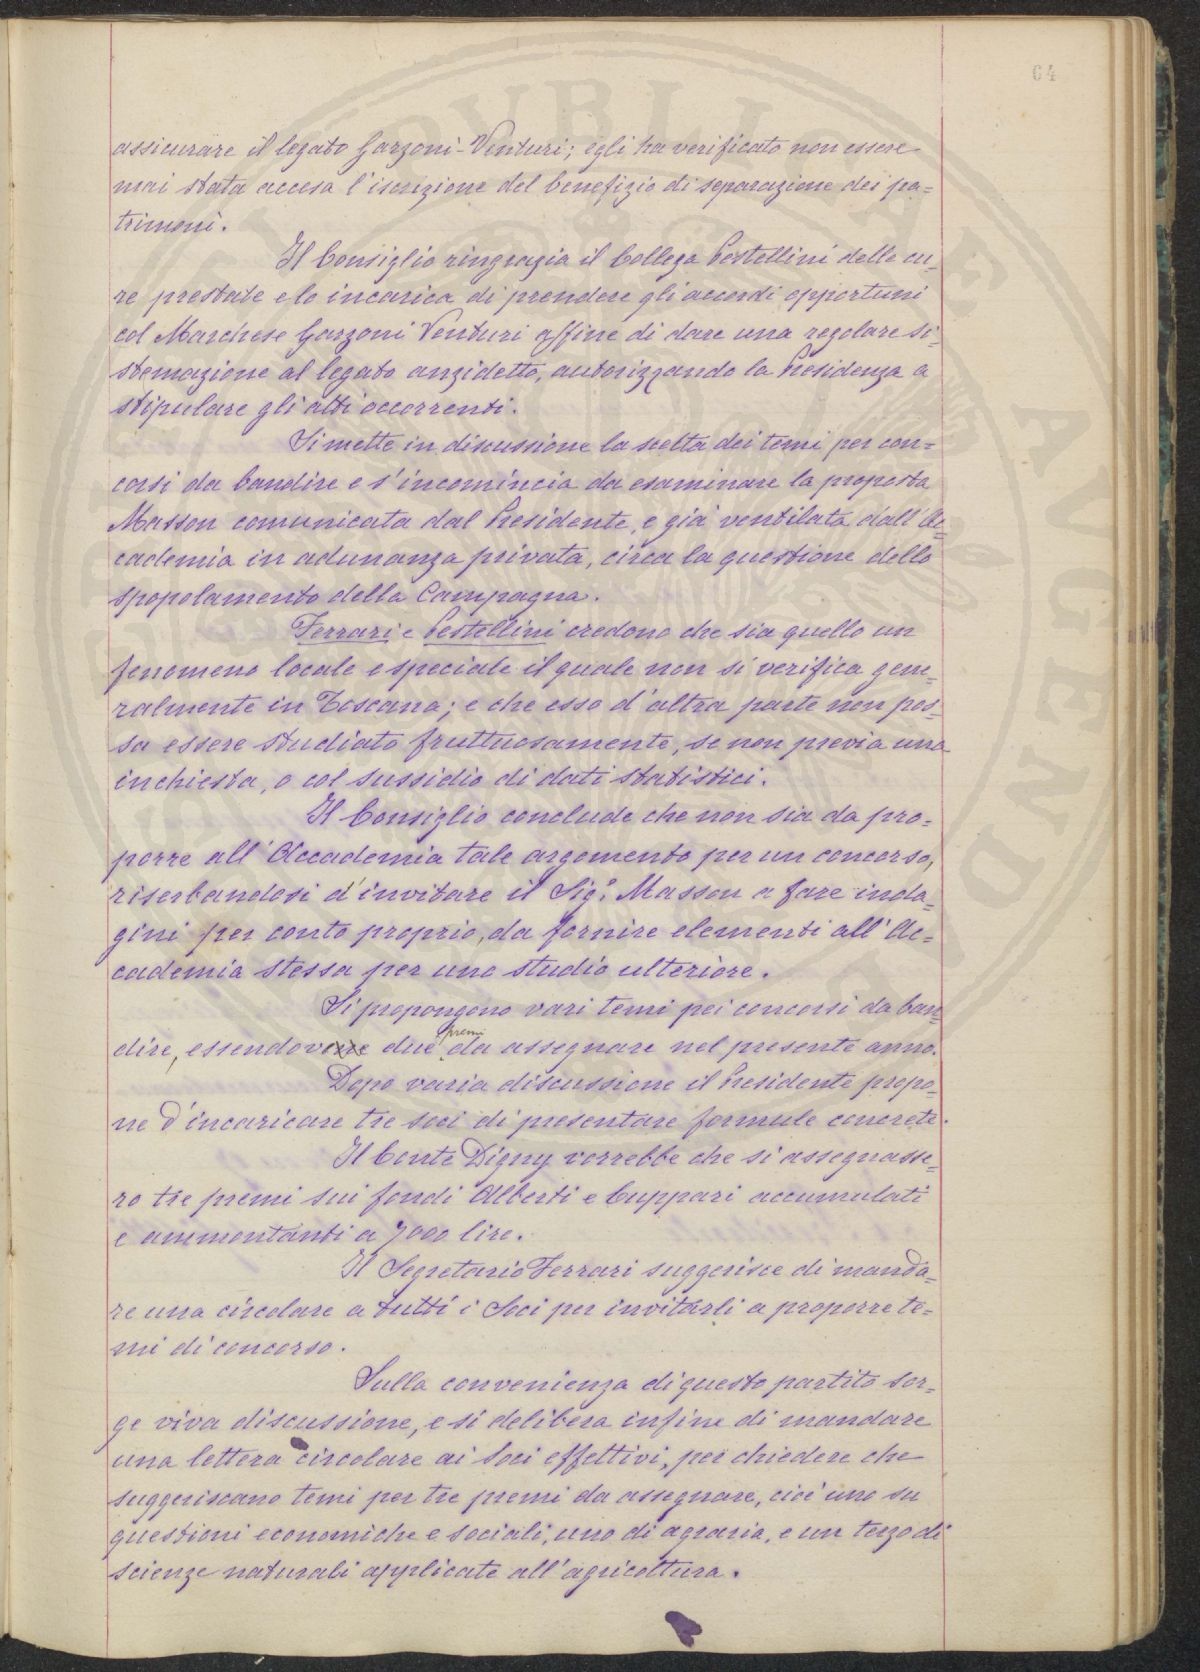 64
assicurare il legato Garzoni-Venturi; egli ha verificato non essere
mai stata accesa l'iscrizione del benefizio di separazione dei pa=
trimoni.
Il Consiglio ringrazia il Collega Pestellini delle cu=
re prestate e lo incarica di prendere gli accordi opportuni
col Marchese Garzoni Venturi affine di dare una regolare si=
stemazione al legato anzidetto, autorizzando la Presidenza a
stipulare gli atti occorrenti.
Si mette in discussione la scelta dei temi per con=
corsi da bandire e s'incomincia da esaminare la proposta
Masson comunicata dal Presidente, e già ventilata dall'Ac=
cademia in adunanza privata, circa la questione dello
spopolamento della Campagna.
Ferrari e Pestellini credono che sia quello un
fenomeno locale e speciale il quale non si verifica gene=
ralmente in Toscana; e che esso d'altra parte non pos=
sa essere studiato fruttuosamente, se non previa una
inchiesta, o col sussidio di dati statistici.
Il Consiglio conclude che non sia da pro=
porre all'Accademia tale argomento per un concorso,
riserbandosi d'invitare il Sigr. Masson a fare inda=
gini per conto proprio, da fornire elementi all'Ac=
cademia stessa per uno studio ulteriore.
Si propongono vari temi pei concorsi da ban=
dire, essendove due premi da assegnare nel presente anno.
Dopo varia discussione il Presidente propo=
ne d'incaricare tre soci di presentare formule concrete.
Il Conte Digny vorrebbe che si assegnasse=
ro tre premi sui fondi Alberti e Cuppari accumulati
e ammontanti a 7000 lire.
Il Segretario Ferrari suggerisce di manda=
re una circolare a tutti i Soci per invitarli a proporre te=
mi di concorso.
Sulla convenienza di questo partito sor=
ge viva discussione, e si delibera infine di mandare
una lettera circolare ai Soci effettivi, per chiedere che
suggeriscano temi per tre premi da assegnare, cioè uno su
questioni economiche e sociali, uno di agraria, e un terzo di
scienze naturali applicate all'agricoltura.